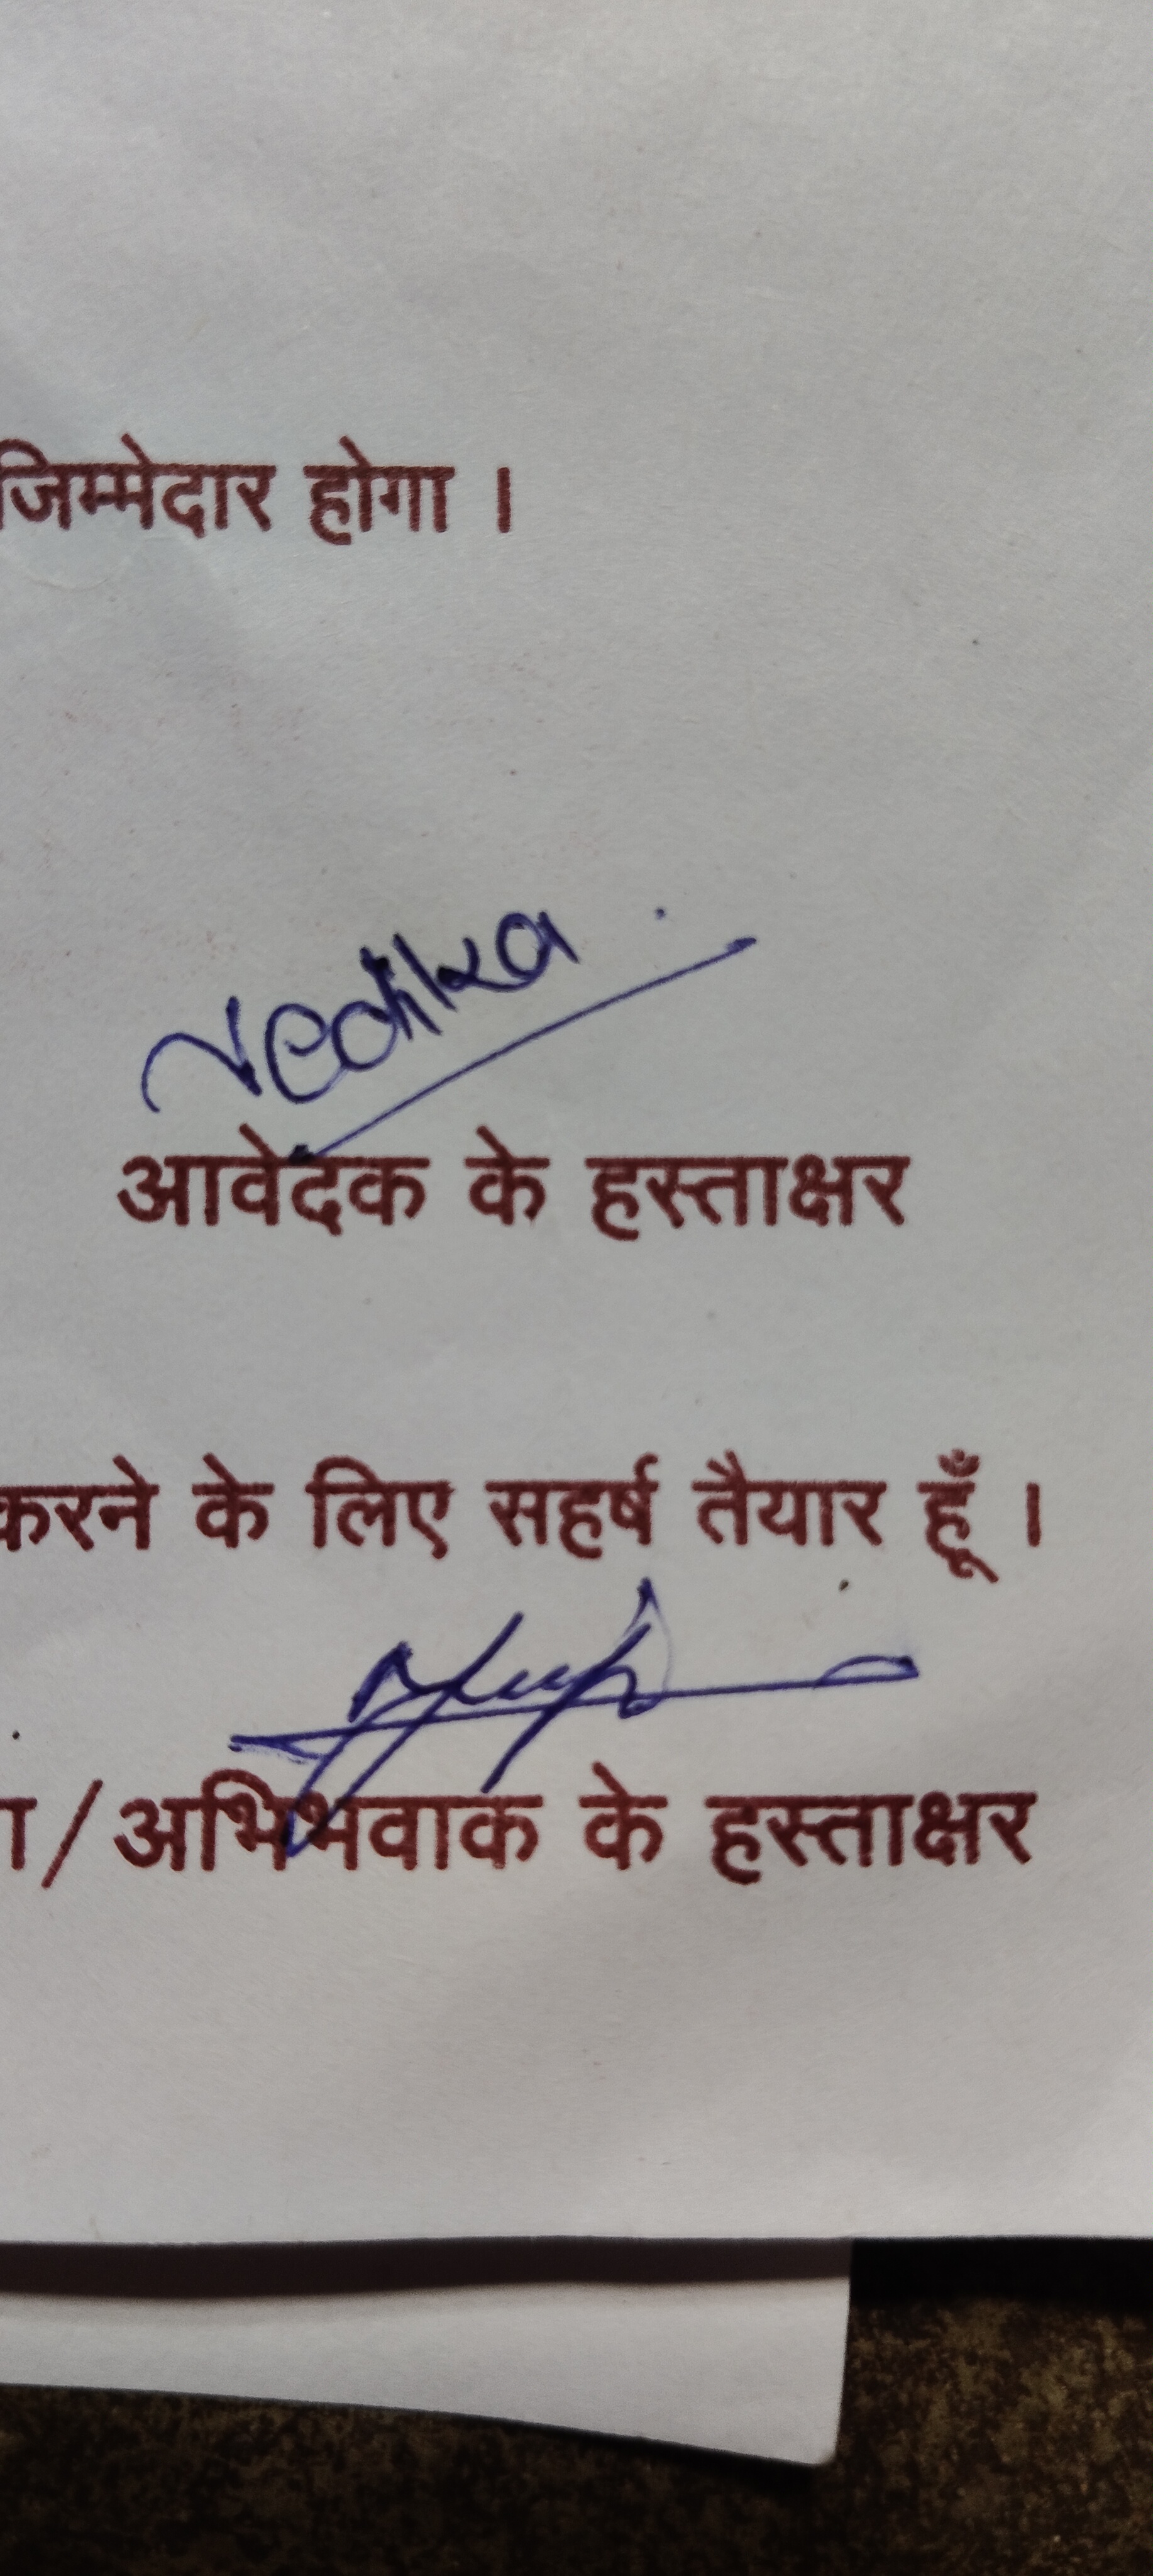 जिम्मेदार होगा ।
Vedika
आवेदक के हस्ताक्षर
करने के लिए सहर्ष तैयार हूँ ।
/अभिभवाक के हस्ताक्षर